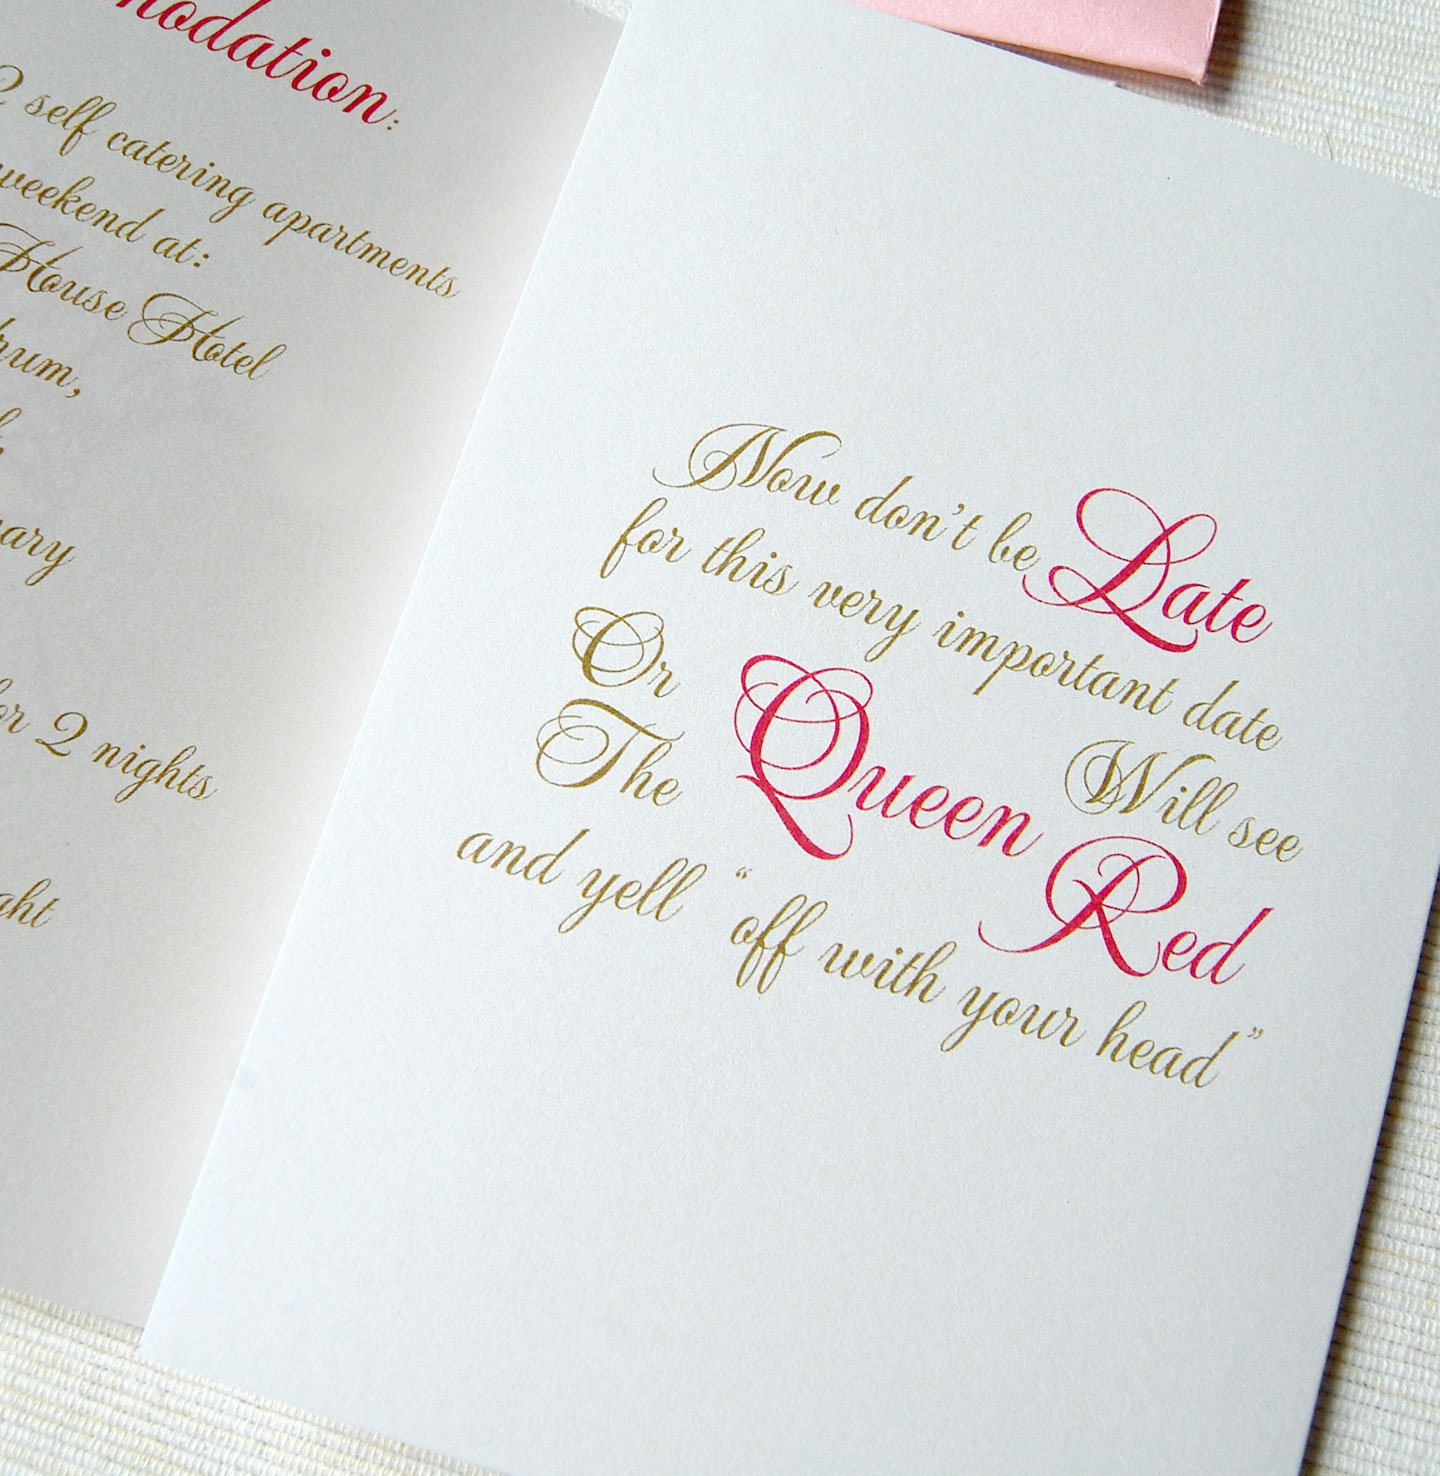 self catering apartments
weekend at:
House Hotel
for 2 nights
Now don't be Late
for this very important date
Or
The Queen Will see
Red
and yell "off with your head"